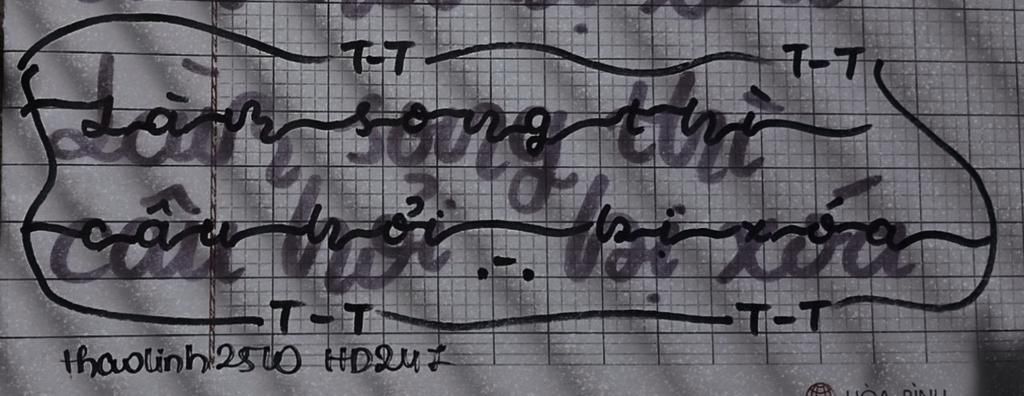 T-T T-T
Làm song thì
câu hỏi bị xóa
.-.
T-T T-T
thaolinh2510 HD247
HÒA BÌNH